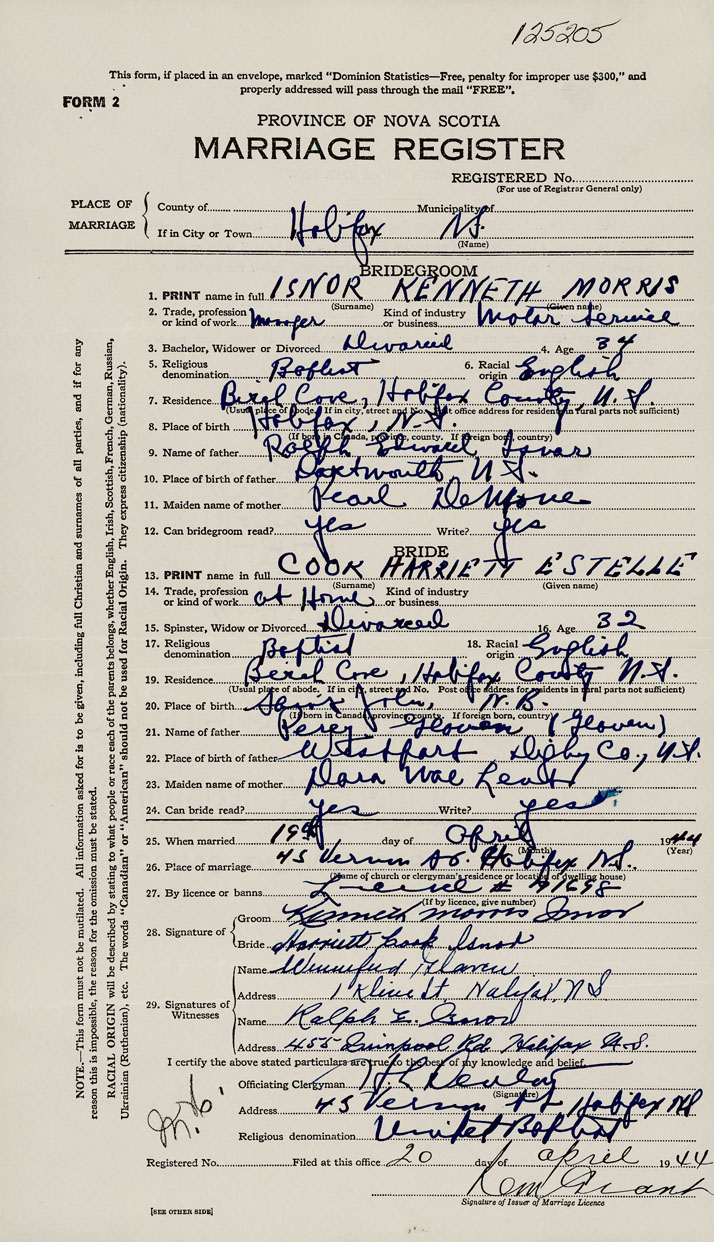 125205
This form, if placed in an envelope, marked "Dominion Statistics—Free, penalty for improper use $300," and
properly addressed will pass through the mail "FREE".
FORM 2
PROVINCE OF NOVA SCOTIA
MARRIAGE REGISTER
REGISTERED No.
(For use of Registrar General only)
PLACE OF MARRIAGE
County of Municipality of
If in City or Town Halifax N.S.
(Name)
BRIDEGROOM
1. PRINT name in full ISNOR KENNETH MORRIS
(Surname) (Given name)
2. Trade, profession or kind of work Manager Kind of industry or business Motor Service
3. Bachelor, Widower or Divorced Divorced 4. Age 34
5. Religious denomination Baptist 6. Racial origin English
7. Residence Birch Cove, Halifax County, N.S.
(Usual place of abode. If in city, street and No. Post office address for residents in rural parts not sufficient)
8. Place of birth Halifax, N.S.
(If born in Canada, province, county. If foreign born, country)
9. Name of father Ralph Edward Isnor
10. Place of birth of father Dartmouth N.S.
11. Maiden name of mother Pearl DeMone
12. Can bridegroom read? yes Write? yes
BRIDE
13. PRINT name in full COOK HARRIETT ESTELLE
(Surname) (Given name)
14. Trade, profession or kind of work at Home Kind of industry or business
15. Spinster, Widow or Divorced Divorced 16. Age 32
17. Religious denomination Baptist 18. Racial origin English
19. Residence Birch Cove, Halifax County N.S.
(Usual place of abode. If in city, street and No. Post office address for residents in rural parts not sufficient)
20. Place of birth John, N.B.
(If born in Canada, province, county. If foreign born, country)
21. Name of father Percy
22. Place of birth of father Westport Digby Co., N.S.
23. Maiden name of mother Mae
24. Can bride read? yes Write? yes
25. When married 19th day of April 1944
(Month) (Year)
26. Place of marriage 45 Vernon St. Halifax N.S.
(Name of church or clergyman's residence or location of dwelling house)
27. By licence or banns License #
(If by licence, give number)
28. Signature of
Groom Kenneth Morris Isnor
Bride Harriett Cook Isnor
29. Signatures of Witnesses
Name Winnifred
Address 1 Kline St, Halifax, N S
Name Ralph E. Isnor
Address 455 Quinpool Rd. Halifax N.S.
I certify the above stated particulars are true to the best of my knowledge and belief.
Officiating Clergyman
(Signature)
Address 45 Vernon St Halifax NS
Religious denomination United Baptist
Registered No. Filed at this office 20 day of April 1944
Signature of Issuer of Marriage Licence
[SEE OTHER SIDE]
NOTE.—This form must not be mutilated. All information asked for is to be given, including full Christian and surnames of all parties, and if for any
reason this is impossible, the reason for the omission must be stated.
RACIAL ORIGIN will be described by stating to what people or race each of the parents belongs, whether English, Irish, Scottish, French, German, Russian,
Ukrainian (Ruthenian), etc. The words "Canadian" or "American" should not be used for Racial Origin. They express citizenship (nationality).